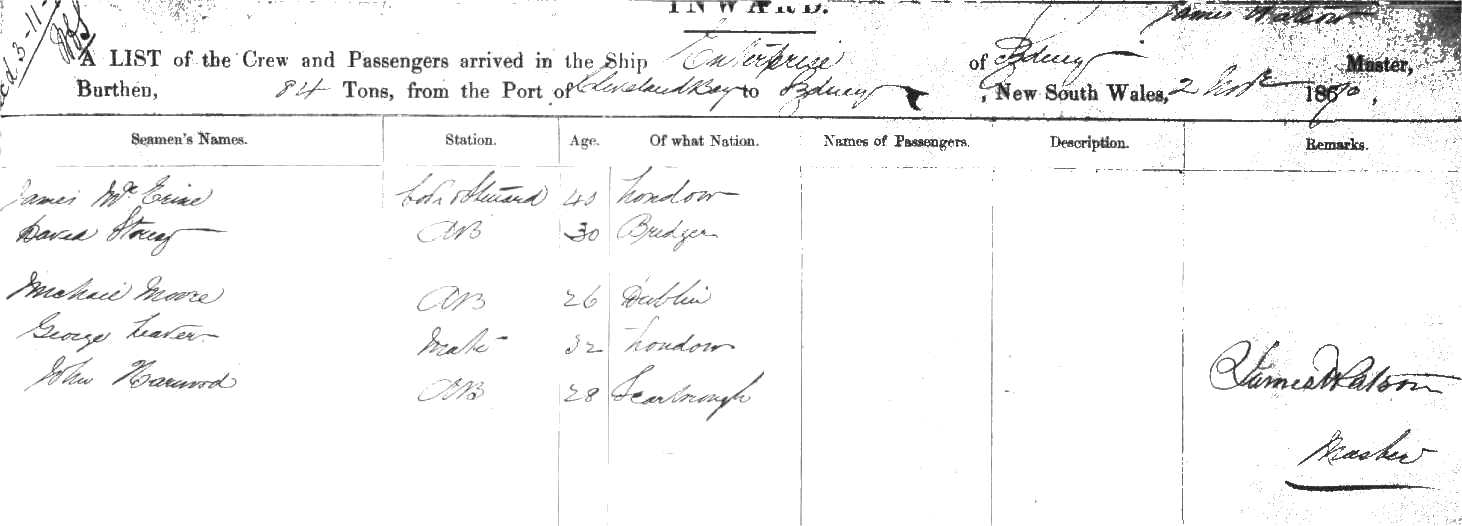 INWARD.
James Watson
A LIST of the Crew and Passengers arrived in the Ship Enterprise of Sydney Master,
Burthen, 84 Tons, from the Port of Cleveland Bay to Sydney, New South Wales, 2 Novr 1870,
Seamen's Names. Station. Age. Of what Nation. Names of Passengers. Description. Remarks.
James Mc Cook & Steward 40 London
David AB 30
Michael Moore AB 26 Dublin
George Leaver Mate 32 London
John Harwood AB 28 Scarbrough
James Watson
Master